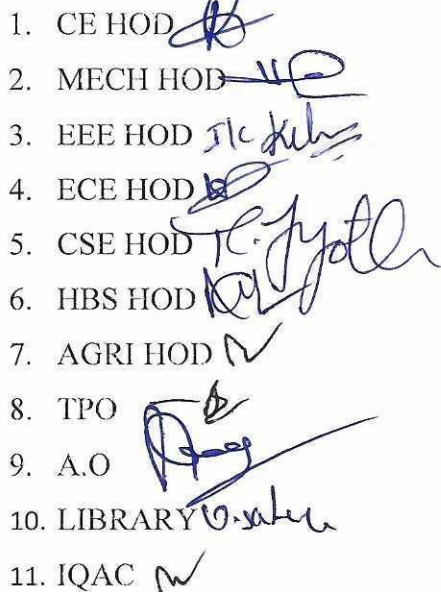 1. CE HOD
2. MECH HOD
3. EEE HOD I/c
4. ECE HOD
5. CSE HOD K. Jyothi
6. HBS HOD
7. AGRI HOD
8. TPO
9. A.O
10. LIBRARY
11. IQAC